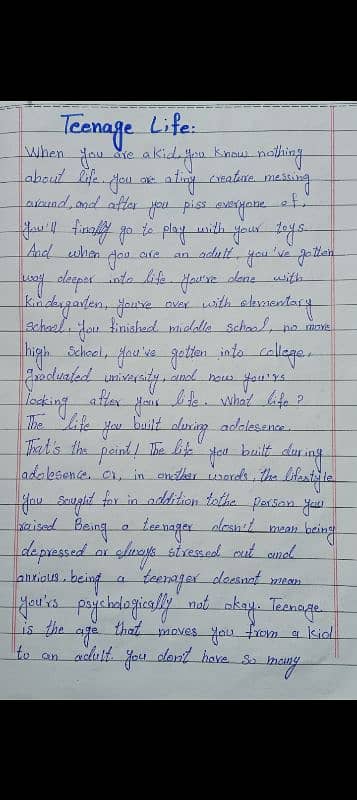 Teenage Life:
When you are a kid, you know nothing
about life. You are a tiny creature messing
around, and after you piss everyone of,
you'll finally go to play with your toys.
And when you are an adult, you've gotten
way deeper into life. You're done with
Kindergarten, you're over with elementary
school. You finished middle school, no more
high school, you've gotten into college,
graduated university, and now you'rs
looking after your life. What life?
The life you built during adolesence.
That's the point! The life you built during
adolesence. Or, in another words, the lifestyle
you sought for in addition tothe person you
raised Being a teenager doesn't mean being
depressed or always stressed out and
anxious. being a teenager doesnot mean
you'rs psychologically not okay. Teenage
is the age that moves you from a kid
to an adult. You don't have so many